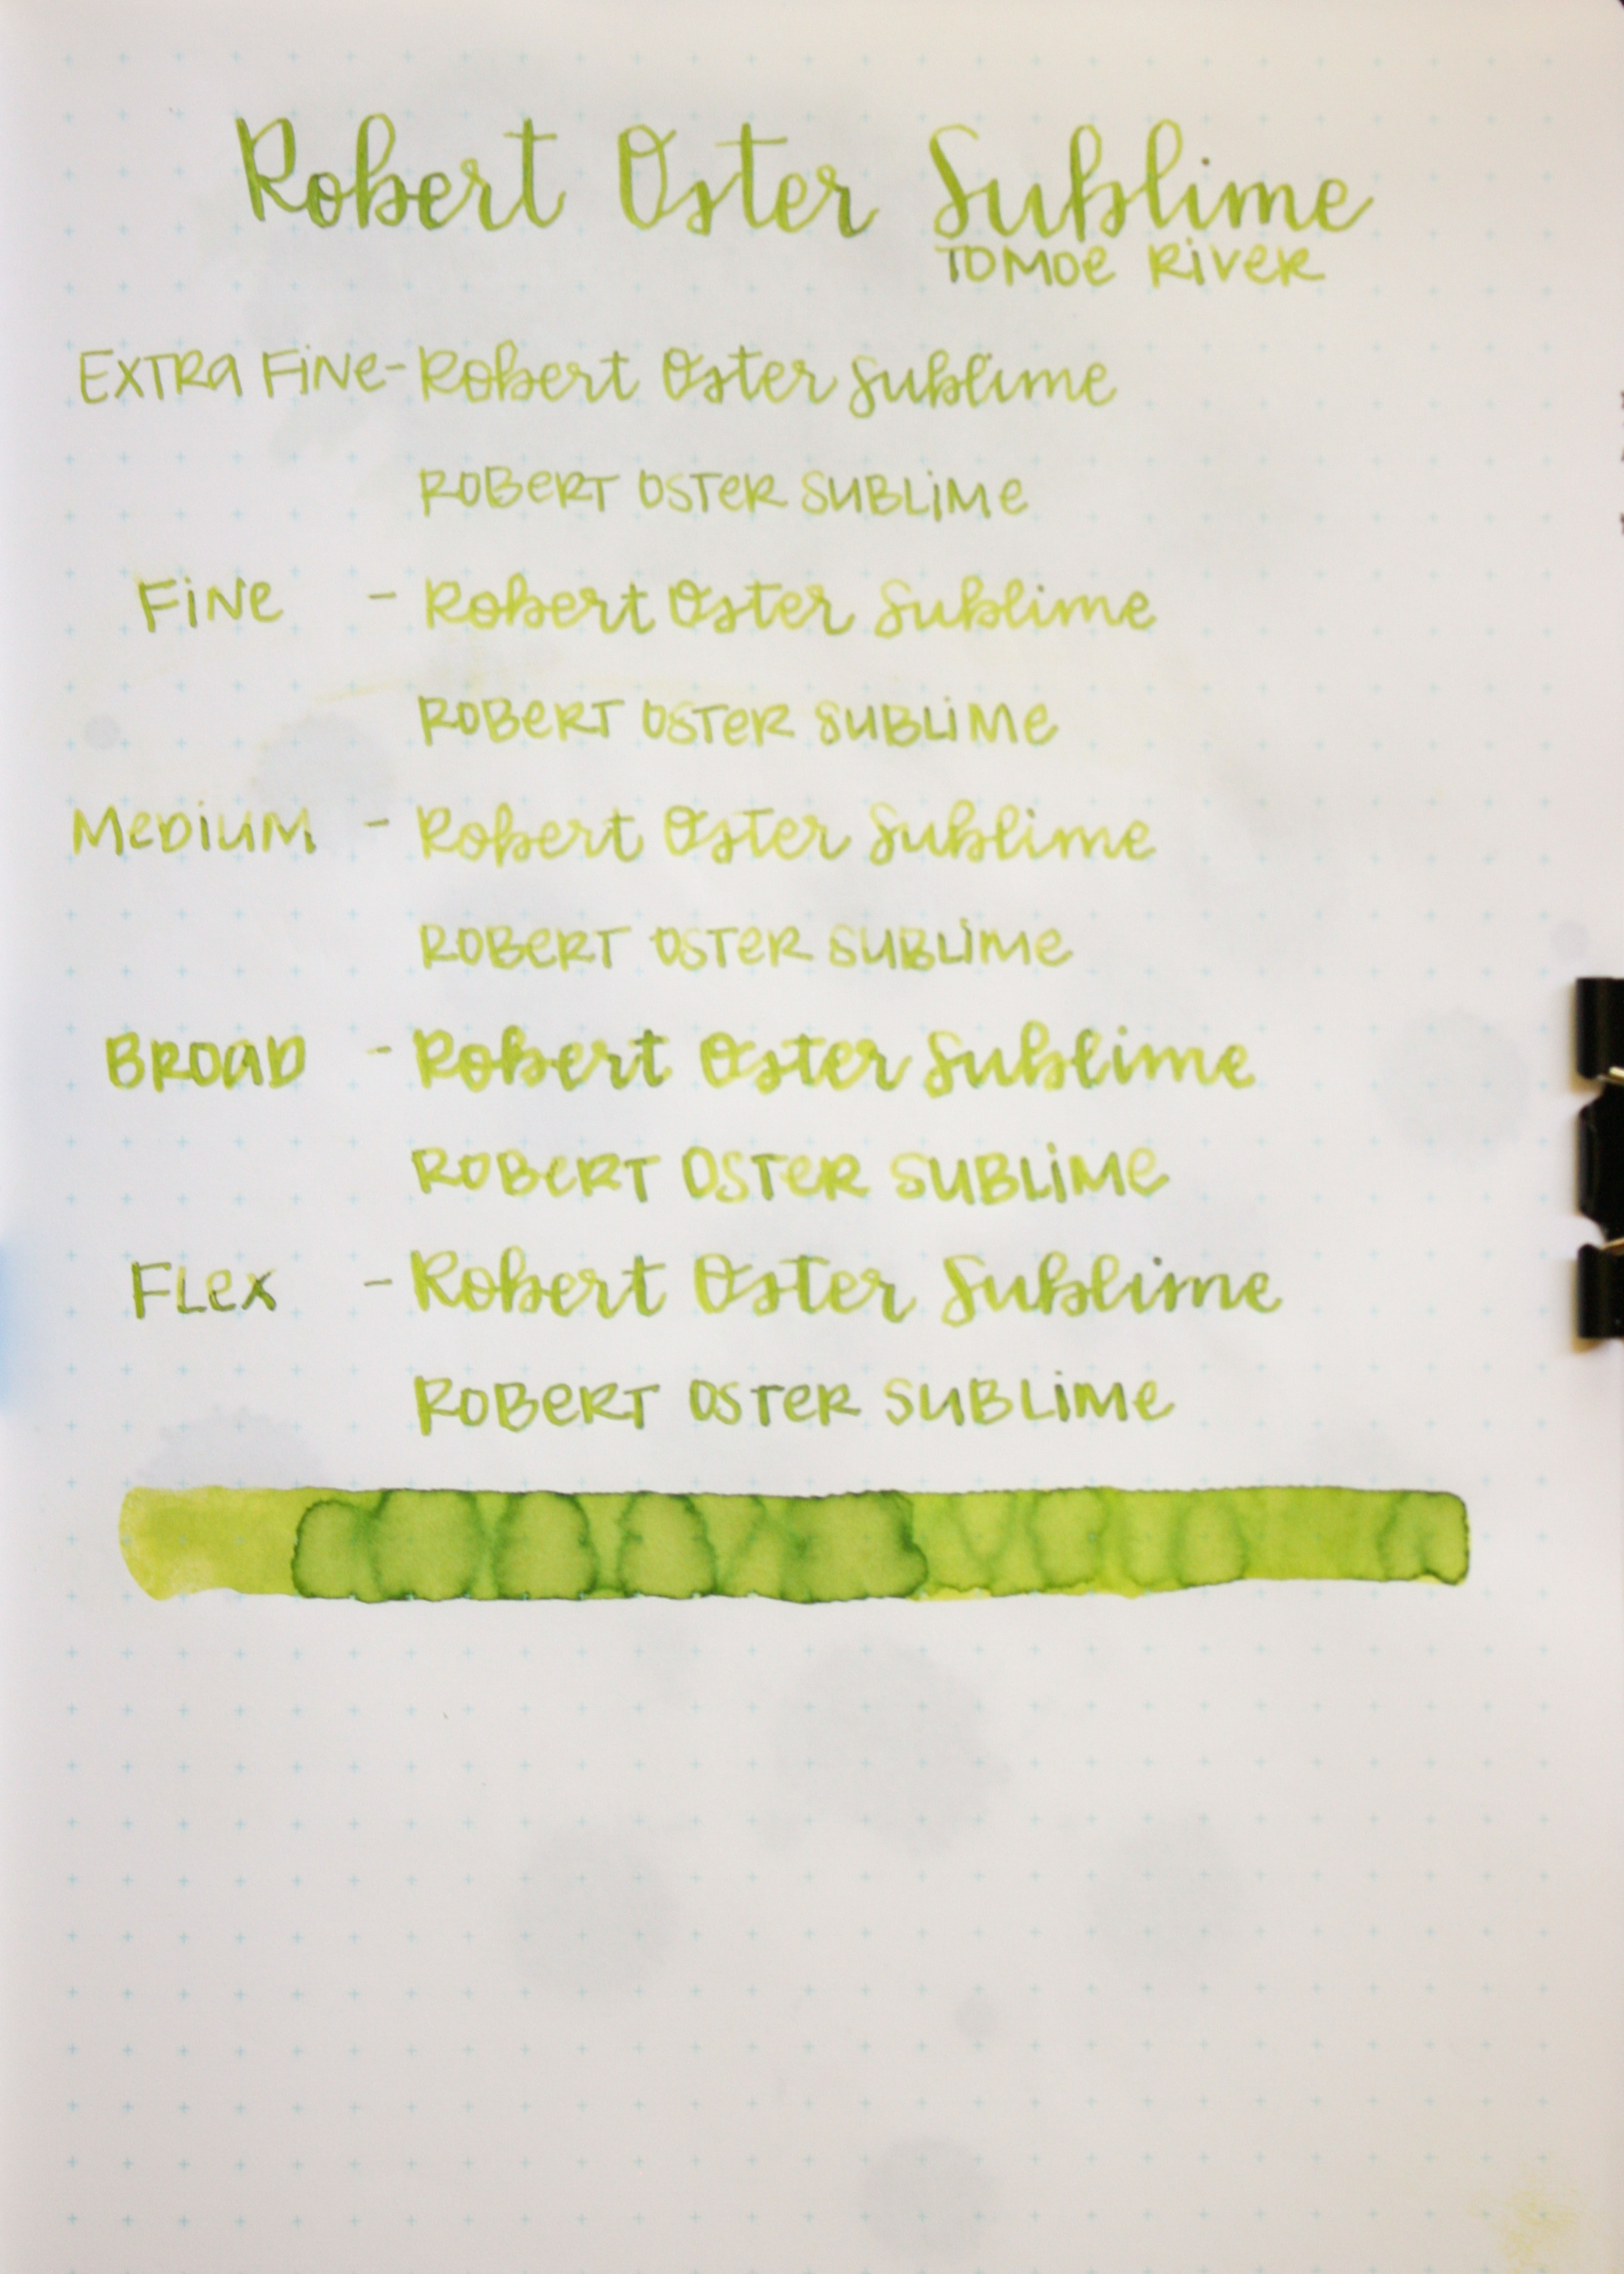 Robert Oster Sublime
TOMOE RIVER
EXTRA FINE - Robert Oster Sublime
ROBERT OSTER SUBLIME
FINE - Robert Oster Sublime
ROBERT OSTER SUBLIME
MEDIUM - Robert Oster Sublime
ROBERT OSTER SUBLIME
BROAD - Robert Oster Sublime
ROBERT OSTER SUBLIME
FLEX - Robert Oster Sublime
ROBERT OSTER SUBLIME